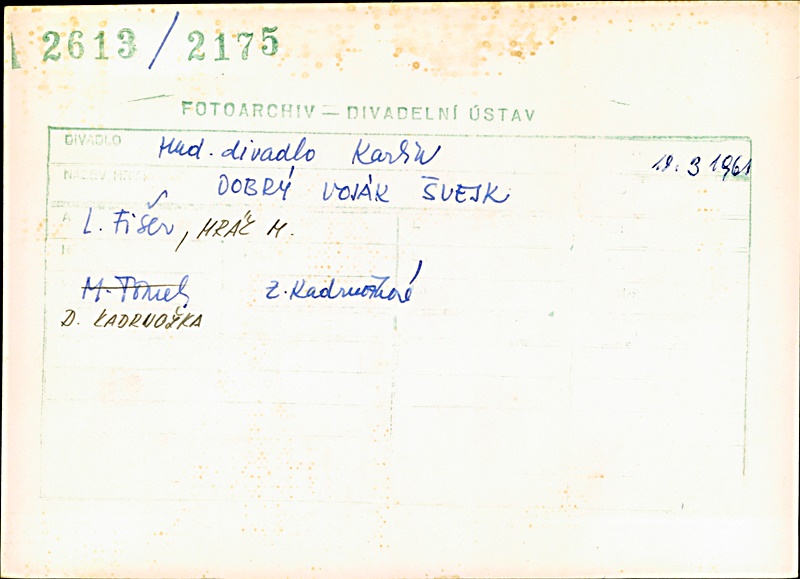 2613/2175
FOTOARCHIV — DIVADELNÍ ÚSTAV
DIVADLO Hud. divadlo Karlín 19. 3 1961
NÁZEV HRY DOBRÝ VOJÁK ŠVEJK
A L. Fišer, HRÁČ M.
M. Tomek Z. Kadrnožková
D. KADRNOŽKA